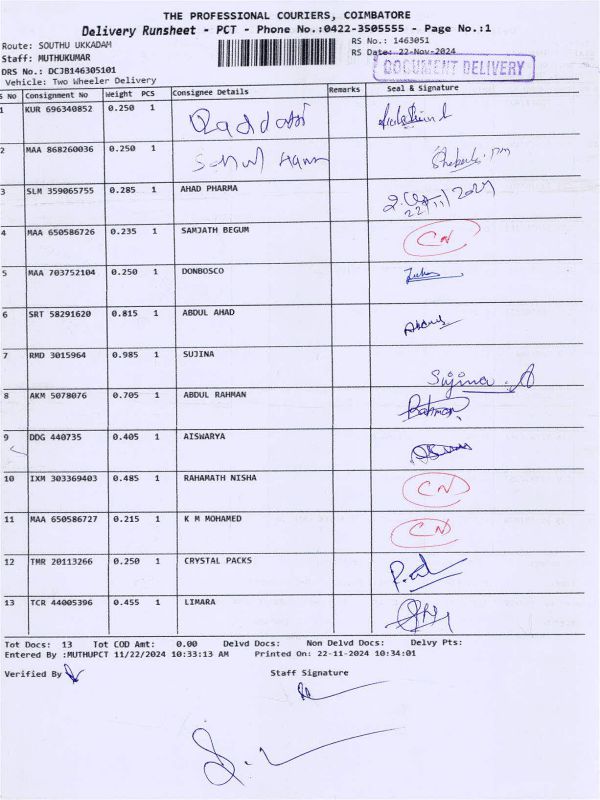 THE PROFESSIONAL COURIERS, COIMBATORE
Delivery Runsheet - PCT - Phone No.:0422-3505555 - Page No.:1
Route: SOUTHU UKKADAM RS No.: 1463051
Staff: MUTHUKUMAR RS Date: 22-Nov-2024
DRS No.: DCJB146305101 DOCUMENT DELIVERY
Vehicle: Two Wheeler Delivery
S No Consignment No Weight PCS Consignee Details Remarks Seal & Signature
1 KUR 696340852 0.250 1
2 MAA 868260036 0.250 1
3 SLM 359065755 0.285 1 AHAD PHARMA 22/11/2024
4 MAA 650586726 0.235 1 SAMJATH BEGUM CN
5 MAA 703752104 0.250 1 DONBOSCO
6 SRT 58291620 0.815 1 ABDUL AHAD
7 RMD 3015964 0.985 1 SUJINA Sujina. A
8 AKM 5078076 0.705 1 ABDUL RAHMAN Rahman
9 DDG 440735 0.405 1 AISWARYA
10 IXM 303369403 0.485 1 RAHAMATH NISHA CN
11 MAA 650586727 0.215 1 K M MOHAMED CN
12 TMR 20113266 0.250 1 CRYSTAL PACKS
13 TCR 44005396 0.455 1 LIMARA
Tot Docs: 13 Tot COD Amt: 0.00 Delvd Docs: Non Delvd Docs: Delvy Pts:
Entered By :MUTHUPCT 11/22/2024 10:33:13 AM Printed On: 22-11-2024 10:34:01
Verified By Staff Signature